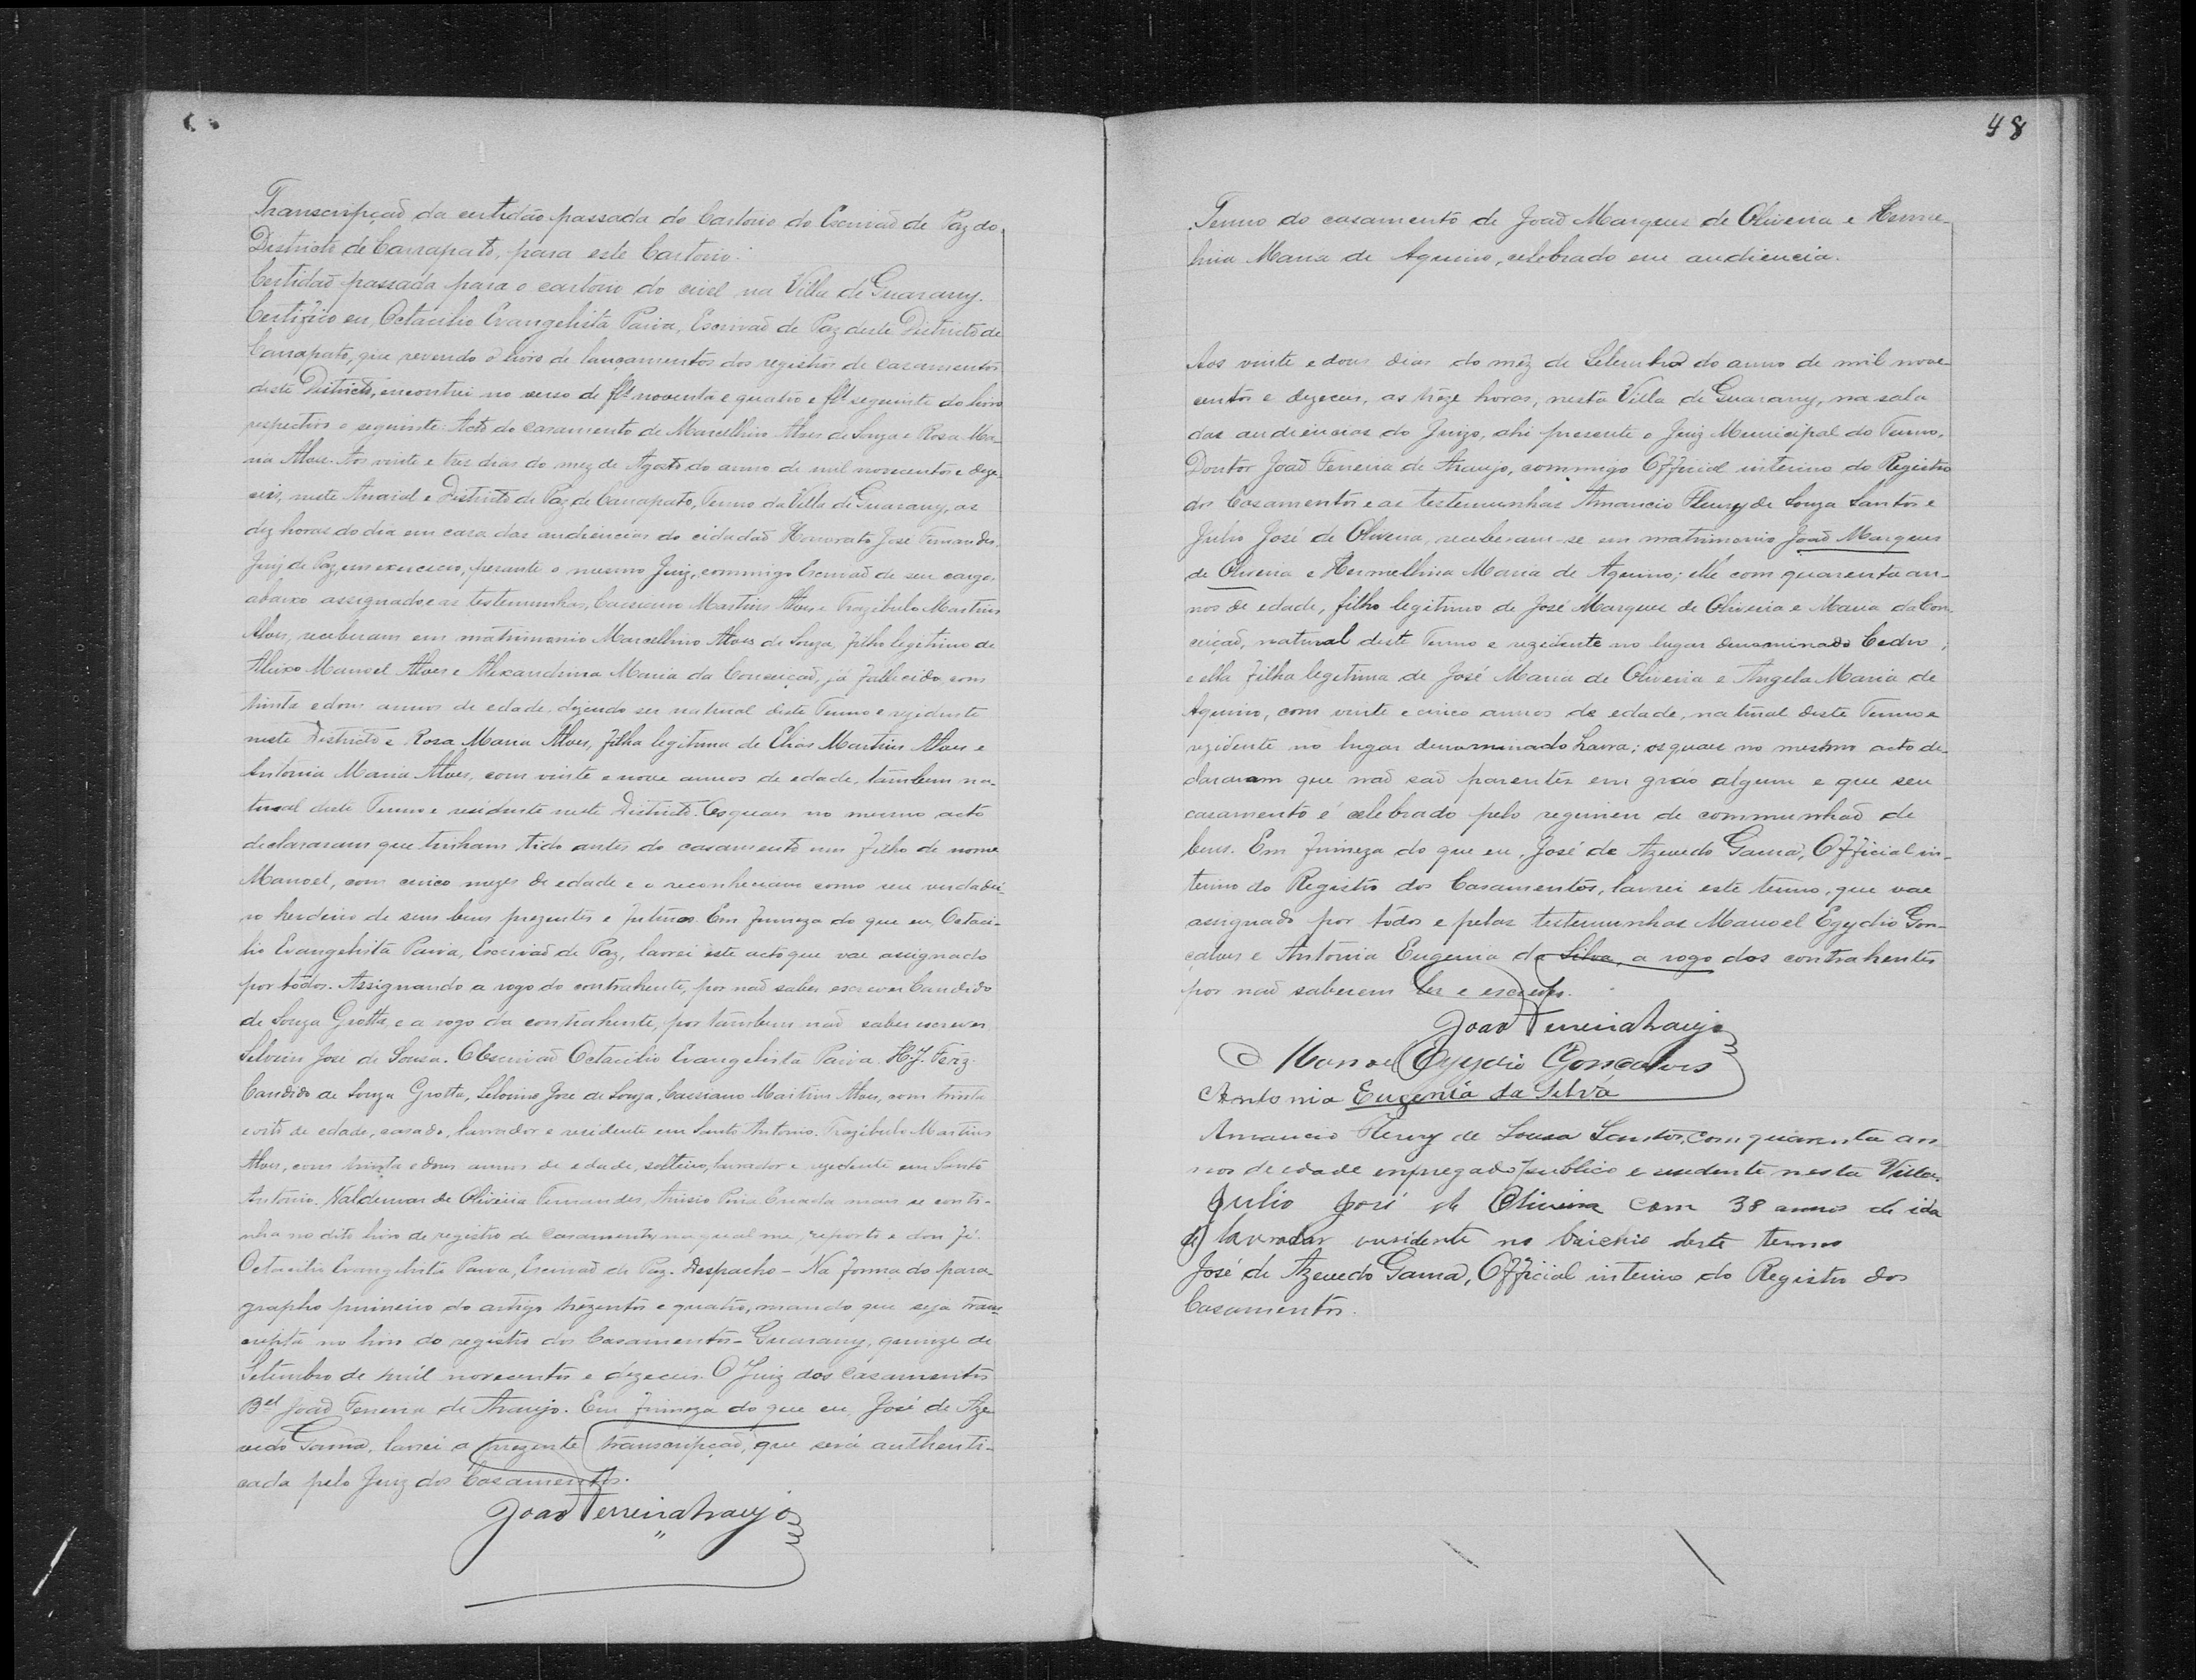 Transcripçaõ da certidão passada do Cartorio do Escrivaõ de Paz do
Districto de Carrapato, para este Cartorio.
Certidaõ passada para o cartorio do civel na Villa de Guarany.
Certifico eu, Octacilio Evangelista Paiva, Escrivaõ de Paz deste Districto de
Carrapato, que revendo o livro de lançamentos dos registros de casamentos
deste Districto, encontrei no verso de flˢ noventa e quatro e flˢ seguinte do livro
respectivo o seguinte: Acto do casamento de Marcellino Alves de Souza e Rosa Ma-
ria Alves. Aos vinte e tres dias do mez de Agosto do anno de mil novecentos e deze-
seis, neste Arraial e Districto de Paz de Carrapato, Termo da Villa de Guarany, as
dez horas do dia em casa das audiencias do cidadaõ Honorato José Fernandes,
Juiz de Paz, em exercicio, perante o mesmo Juiz, commigo Escrivaõ de seu cargo,
abaixo assignado, e as testemunhas, Cassiano Martins Alves e Trazibulo Martins
Alves, receberam em matrimonio Marcellino Alves de Souza, filho legitimo de
Aleixo Manoel Alves e Alexandrina Maria da Conceiçaõ, já fallecido, com
trinta e dous annos de edade, dizendo ser natural deste Termo e rezidente
neste Districto e Rosa Maria Alves, filha legitima de Elias Martins Alves e
Antonia Maria Alves, com vinte e nove annos de edade, tambem na-
tural deste Termo e residente neste Districto. Os quaes no mesmo acto
declararam que tinham tido antes do casamento um filho de nome
Manoel, com cinco mezes de edade e o reconheciam como seu verdadei-
ro herdeiro de seus bens prezentes e futuros. Em firmeza do que eu, Octaci-
lio Evangelista Paiva, Escrivaõ de Paz, lavrei este acto que vae assignado
por todos. Assignando a rogo do contrahente, por naõ saber escrever Candido
de Souza Grotta, e a rogo da contrahente, por tambem naõ saber escrever
Silvino José de Sousa. O Escrivaõ Octacilio Evangelista Paiva. H. J. Ferz.
Candido de Souza Grotta, Silvino Jose de Souza, Cassiano Martins Alves, com trinta
e oito de edade, casado, lavrador e residente em Santo Antonio. Trazibulo Martins
Alves, com trinta e dous annos de edade, solteiro, lavrador e rezidente em Santo
Antonio. Waldemar de Oliveira Fernandes, mais se conti-
nha no dito livro de registro de casamentos no qual me reporto e dou fé.
Octacilio Evangelista Paiva, Escrivaõ de Paz. Despacho - Na forma do para-
grapho primeiro do artigo trezentos e quatro, mando que seja trans-
cripta no livro do registro dos Casamentos - Guarany, quinze de
Setembro de mil novecentos e dezeseis. O Juiz dos casamentos
Bel Joaõ Ferreira de Araujo. Em firmeza do que eu José de Aze-
vedo Gama, lavrei a prezente transcripçaõ, que será authenti-
cada pelo Juiz dos Casamentos.
Joaõ Ferreira Araujo
48
Termo do casamento de Joaõ Marques de Oliveira e Herme-
lina Maria de Aquino, celebrado em audiencia.
Aos vinte e dous dias do mêz de Setembro do anno de mil nove
centos e dezeceis, as trêze horas, nesta Villa de Guarany, na sala
das audiencias do Juizo, ahi presente o Juiz Municipal do Termo,
Doutor Joaõ Ferreira de Araujo, commigo Official interino do Registro
dos Casamentos e as testemunhas Amancio Fleury de Souza Santos e
Julio José de Oliveira, receberam-se em matrimonio Joaõ Marques
de Oliveira e Hermellina Maria de Aquino; elle com quarenta an-
nos de edade, filho legitimo de José Marques de Oliveira e Maria da Con-
ceiçaõ, natural deste Termo e rezidente no lugar denominado Cedro,
e ella filha legitima de José Maria de Oliveira e Angela Maria de
Aquino, com vinte e cinco annos de edade, natural deste Termo e
rezidente no lugar denominado Lavra; os quaes no mesmo acto de-
clararam que naõ saõ parentes em gráo algum e que seu
casamento é celebrado pelo regimen de communhaõ de
bens. Em firmeza do que eu, José de Azevedo Gama, Official in-
terino do Registro dos Casamentos, lavrei este termo, que vae
assignado por todos e pelas testemunhas Manoel Egydio Gon-
çalves e Antonia Eugenia da Silva, a rogo dos contrahentes
por naõ saberem ler e escrever.
Joaõ Ferreira Araujo
Manoel Egydio Gonçalves
Antonia Eugenia da Silva
Amancio Fleury de Sousa Santos, com quarenta an-
nos de edade empregado publico e residente nesta Villa.
Julio José de Oliveira com 38 annos de ida
de lavrador residente no deste termo
José de Azevedo Gama, Official interino do Registro dos
Casamentos.